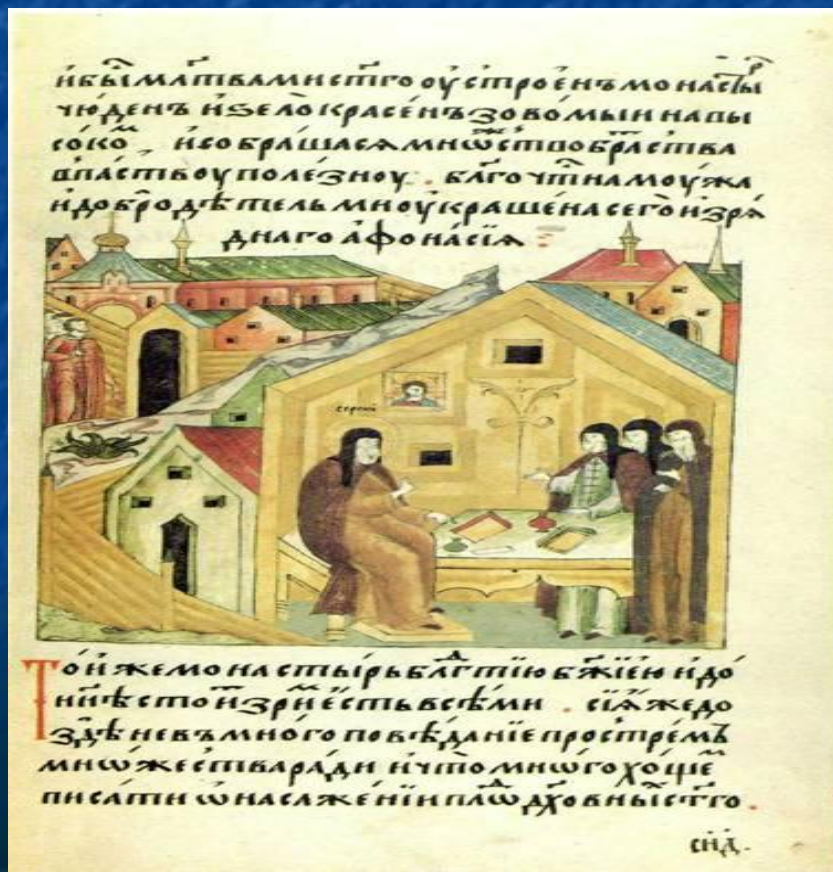 и бы́ мл҃твами ст҃го оустрое́нъ монасты́рⷭ҇
чю́денъ и ѕело̀ красе́нъ зово́мыи на вы
со́ко. и собра́шася мно́жⷤство бра́тства
в па́ствоу поле́зноу. бл҃гочⷭ҇тна мо́ужа
и добродѣ́тельми оукраше́на сего̀ изря́
днаго аѳона́сїа
серги
То́и же монасты́рь блⷣгтїю бж҃їею и до
нн҃ѣ стои́т зри́м е́сть всѣ́ми. сїѧ̑ же до
здѣ̀ не въ мно́го повѣ́данїе простре́мъ
мнѡ́жества ра́ди и что̀ мнѡ́го хо́щеⷨ
писа́ти ѡ насаже́нїи плодѡⷡ҇ дх҃о́вныⷯ ст҃го.